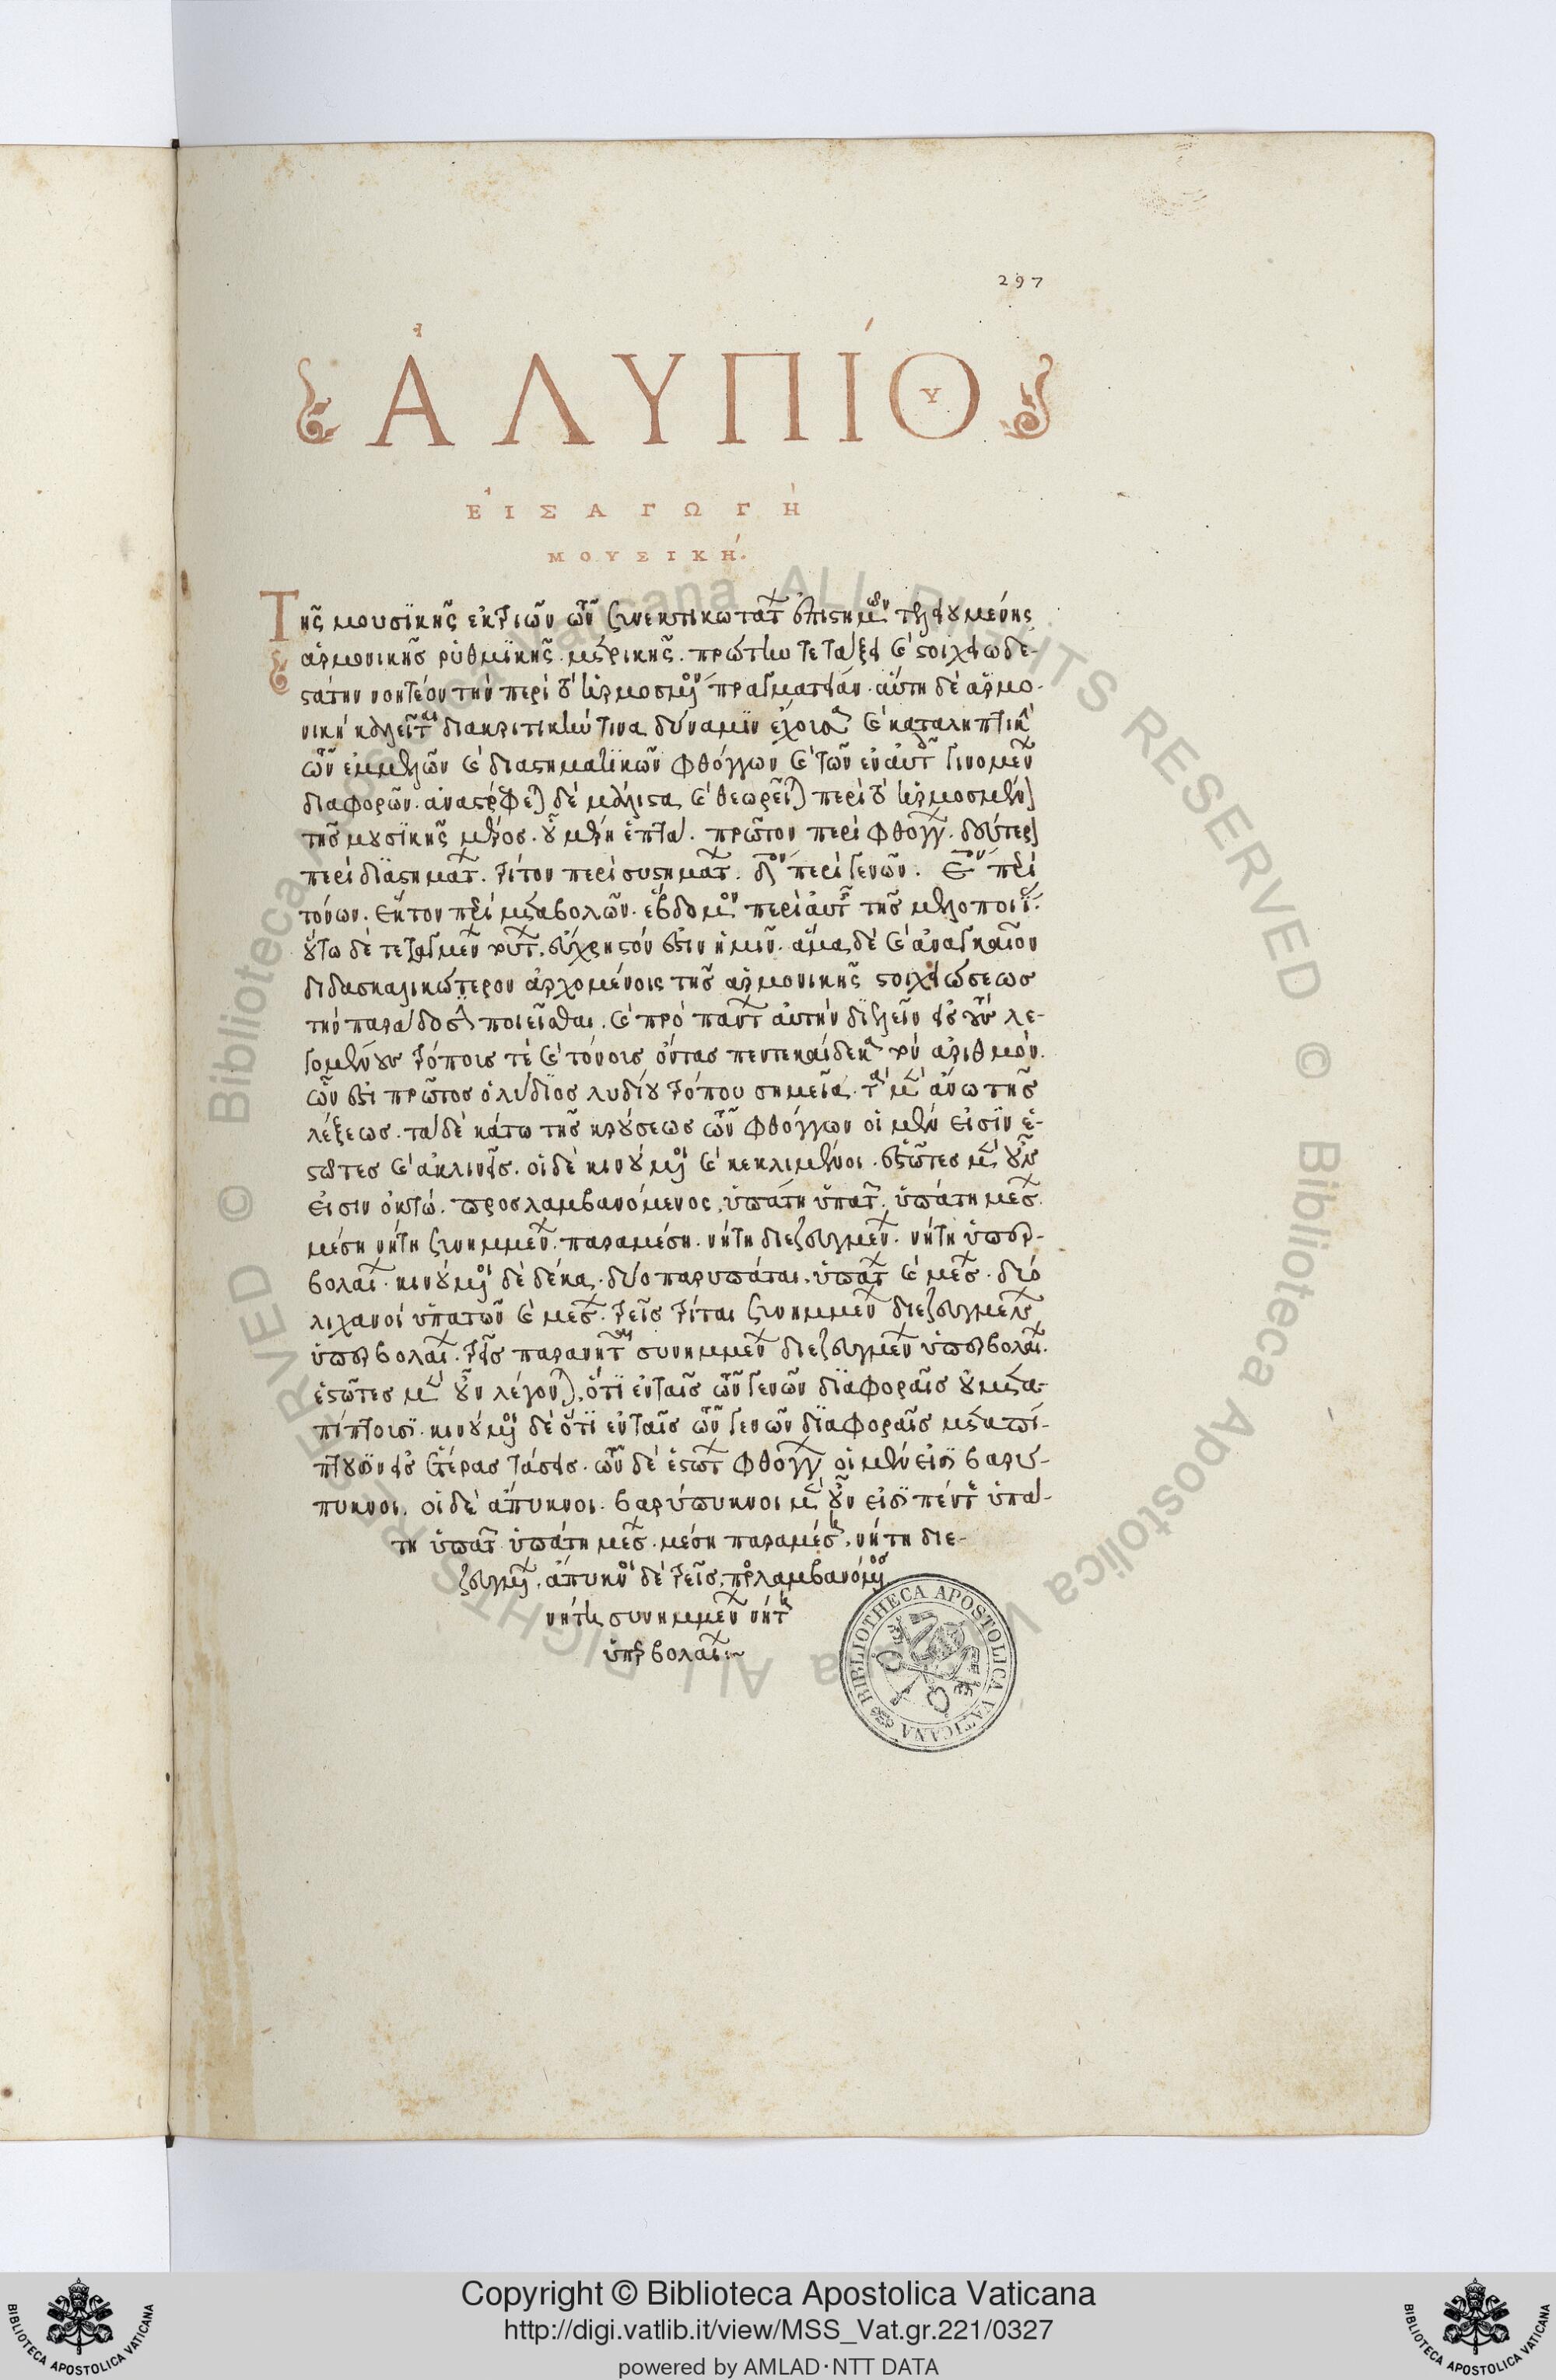 297
ἈΛΥΠΊΟΥ
ΕἸΣΑΓΩΓῊ
ΜΟΥΣΙΚΉ.
Τῆς μουσϊκῆς ἐκ τριῶν τῶν συνεκτικωτάτ ἐπιστημῶν τελειουμένης
ἁρμονικῆσ ῥυθμϊκῆς. μετρικῆς. πρώτην τε τάξει καὶ στοιχειωδε-
στάτην νοητέον τὴν περὶ τοῦ ἡρμοσμένου πραγματείαν. αὕτη δὲ ἁρμο-
νικὴ καλεῖται διακριτικήν τινα δύναμϊν ἔχουσα καὶ καταληπτικὴ
τῶν ἐμμελῶν καὶ διαστηματϊκῶν φθόγγων καὶ τῶν ἐν αὐτ γινομεν
διαφορῶν. ἀναστρέφεται δὲ μάλιστα καὶ θεωρεῖται περὶ τοῦ ἡρμοσμένου
τῆσ μουσϊκῆς μέροσ. οὗ μέρη ἑπτά. πρῶτον περὶ φθογγ. δεύτερον
περὶ διαστηματ. τρίτον περὶ συστηματ. δον περὶ γενῶν. εον περὶ
τόνων. ἕκτον περὶ μεταβολῶν. ἕβδομον περὶ αὐτῆς τῆσ μελοποιΐας.
οὕτω δὲ τεταγμεν τούτ. εὔχρηστόν ἐστιν ἡμῖν. ἅμα δὲ καὶ ἀναγκαῖον
διδασκαλικώτερον ἀρχομένοις τῆσ ἁρμονικῆς στοιχειώσεωσ
τὴν παράδοσιν ποιεῖσθαι. καὶ πρὸ παντ αὐτὴν διελεῖν εἰσ τοὺσ λε-
γομένους τρόπουσ τὲ καὶ τόνουσ ὄντασ πεντεκαίδεκα τὸν ἀριθμόν.
ὧν ἐστι πρῶτοσ ὁ λύδϊοσ λυδίου τρόπου σημεῖα. τὰ μὲν ἄνω τῆσ
λέξεωσ. τὰ δὲ κάτω τῆσ κρούσεωσ τῶν φθόγγων οἱ μέν εἰσϊν ἑ-
στῶτεσ καὶ ἀκλινεῖσ. οἱ δὲ κινούμενοι καὶ κεκλιμένοι. ἑστῶτεσ μὲν οὖν
εἰσιν ὀκτώ. προσλαμβανόμενος. ὑπάτη ὑπατ. ὑπάτη μεσ.
μέση νήτη συνημμεν. παραμέση. νήτη διεζευγμεν. νήτη ὑπερ-
βολαι. κινούμενοι δὲ δέκα. δύο παρυπάται. ὑπατ καὶ μεσ. δύο
λιχανοί ὑπατῶν καὶ μεσ. τρεῖσ τρίται συνημμεν διεζευγμεν
ὑπερβολαι. τρεῖσ παρανητ συνημμεν διεζευγμεν ὑπερβολαι.
ἑστῶτεσ μὲν οὖν λέγονται. ὅτϊ ἐν ταῖσ τῶν γενῶν διαφοραῖσ οὐ μετα-
πίπτουσϊ. κινούμενοι δὲ ὅτϊ ἐν ταῖσ τῶν γενῶν διαφοραῖσ μεταπί-
πτουσϊν εἰσ ἑτέρασ τάσεισ. τῶν δὲ ἑστωτ φθογγ οἱ μέν εἰσϊ βαρύ-
πυκνοι. οἱ δὲ ἄπυκνοι. βαρύπυκνοι μὲν οὖν εἰσϊ πέντε ὑπά-
τη ὑπατ ὑπάτη μεσ. μέση παραμέση. νήτη διε-
ζευγμ. ἄπυκνοι δὲ τρεῖσ. προσλαμβανόμενος
νήτη συνημμεν νήτη
ὑπερβολαι:~
BIBLIOTHECA APOSTOLICA VATICANA
Copyright © Biblioteca Apostolica Vaticana
http://digi.vatlib.it/view/MSS_Vat.gr.221/0327
powered by AMLAD·NTT DATA